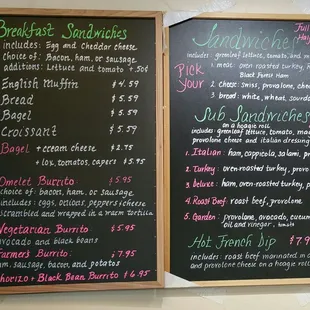 Breakfast Sandwiches
includes: Egg and Cheddar cheese
Choice of: Bacon, ham, or sausage
additions: Lettuce and tomato +.50¢
English Muffin $4.59
Bread $5.59
Bagel $5.59
Croissant $5.59
Bagel + cream cheese $2.75
+ lox, tomato, capers $5.95
Omelet Burrito $5.95
choice of: bacon, ham, or sausage
includes: eggs, onions, peppers & cheese
scrambled and wrapped in a warm tortilla
Vegetarian Burrito $5.95
avocado and black beans
Farmer's Burrito $7.95
ham, sausage, bacon, and potatoes
Chorizo + Black Bean Burrito $6.95
Sandwiches
Full
includes: greenleaf lettuce, tomato, and
Pick Your
1. meat: oven-roasted turkey,
Black Forest Ham
2. cheese: swiss, provolone,
3. bread: white, wheat,
Sub Sandwiches
on a hoagie roll
includes: greenleaf lettuce, tomato,
provolone cheese and italian dressing
1. Italian: ham, cappicola, salami,
2. Turkey: oven-roasted turkey,
3. Deluxe: ham, oven-roasted turkey,
4. Roast Beef: roast beef, provolone
5. Garden: provolone, avocado,
oil and vinegar, tomato
Hot French Dip $7.9
includes: roast beef marinated in
and provolone cheese on a hoagie roll